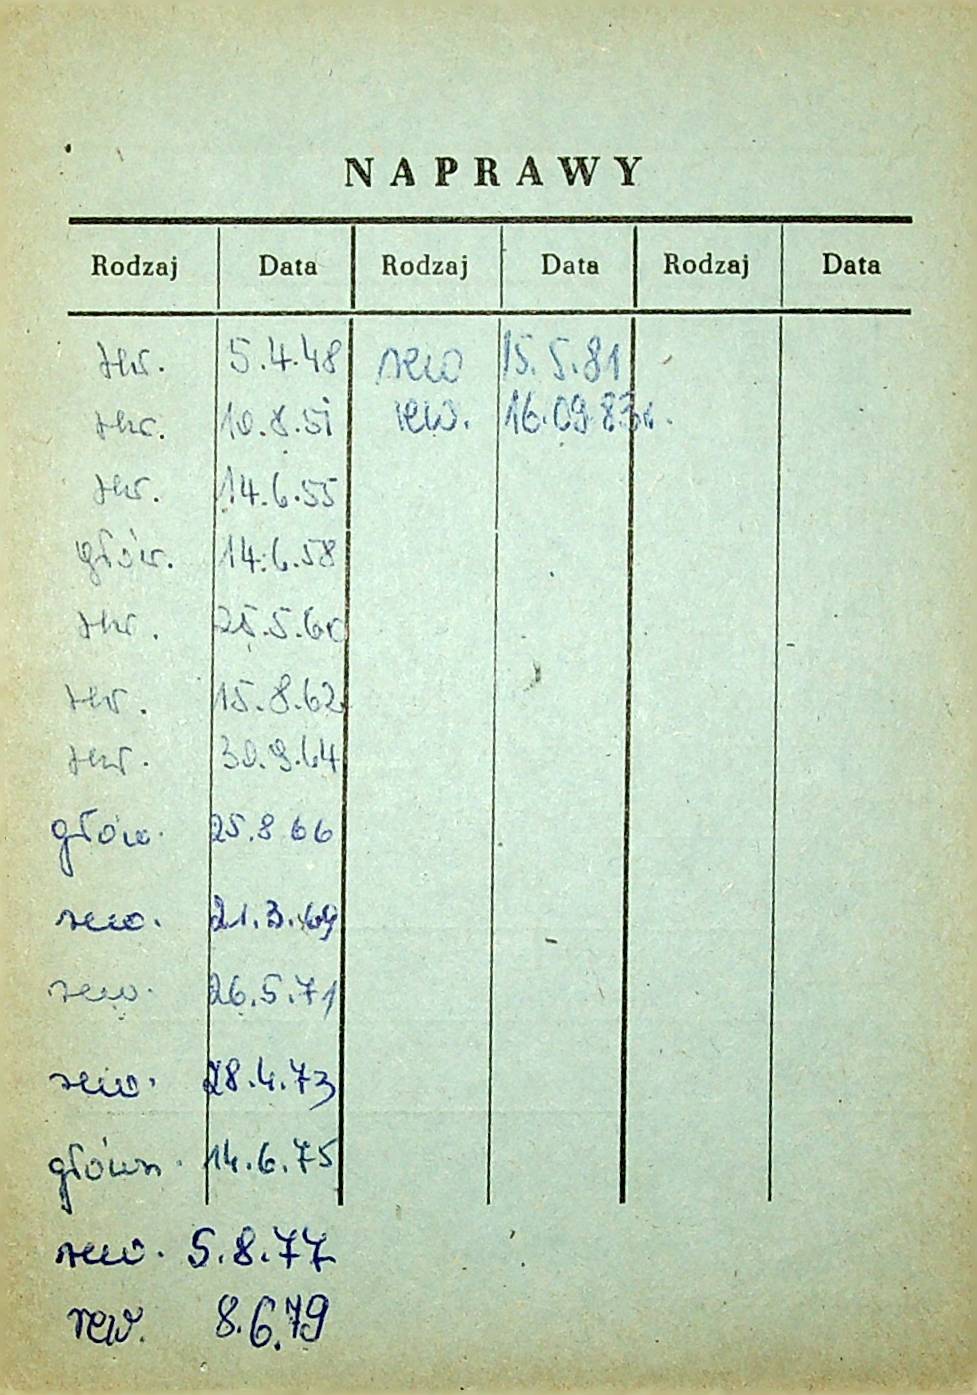 NAPRAWY
Rodzaj Data Rodzaj Data Rodzaj Data
5.4.48 rew 15.5.81
10.8.51 rew. 16.09.83r.
14.6.55
głów. 14.6.58
25.5.60
15.8.62
30.9.64
głów. 25.8 66
rew. 21.3.69
rew. 26.5.71
rew. 28.4.73
główn. 14.6.75
rew. 5.8.77
rew. 8.6.79